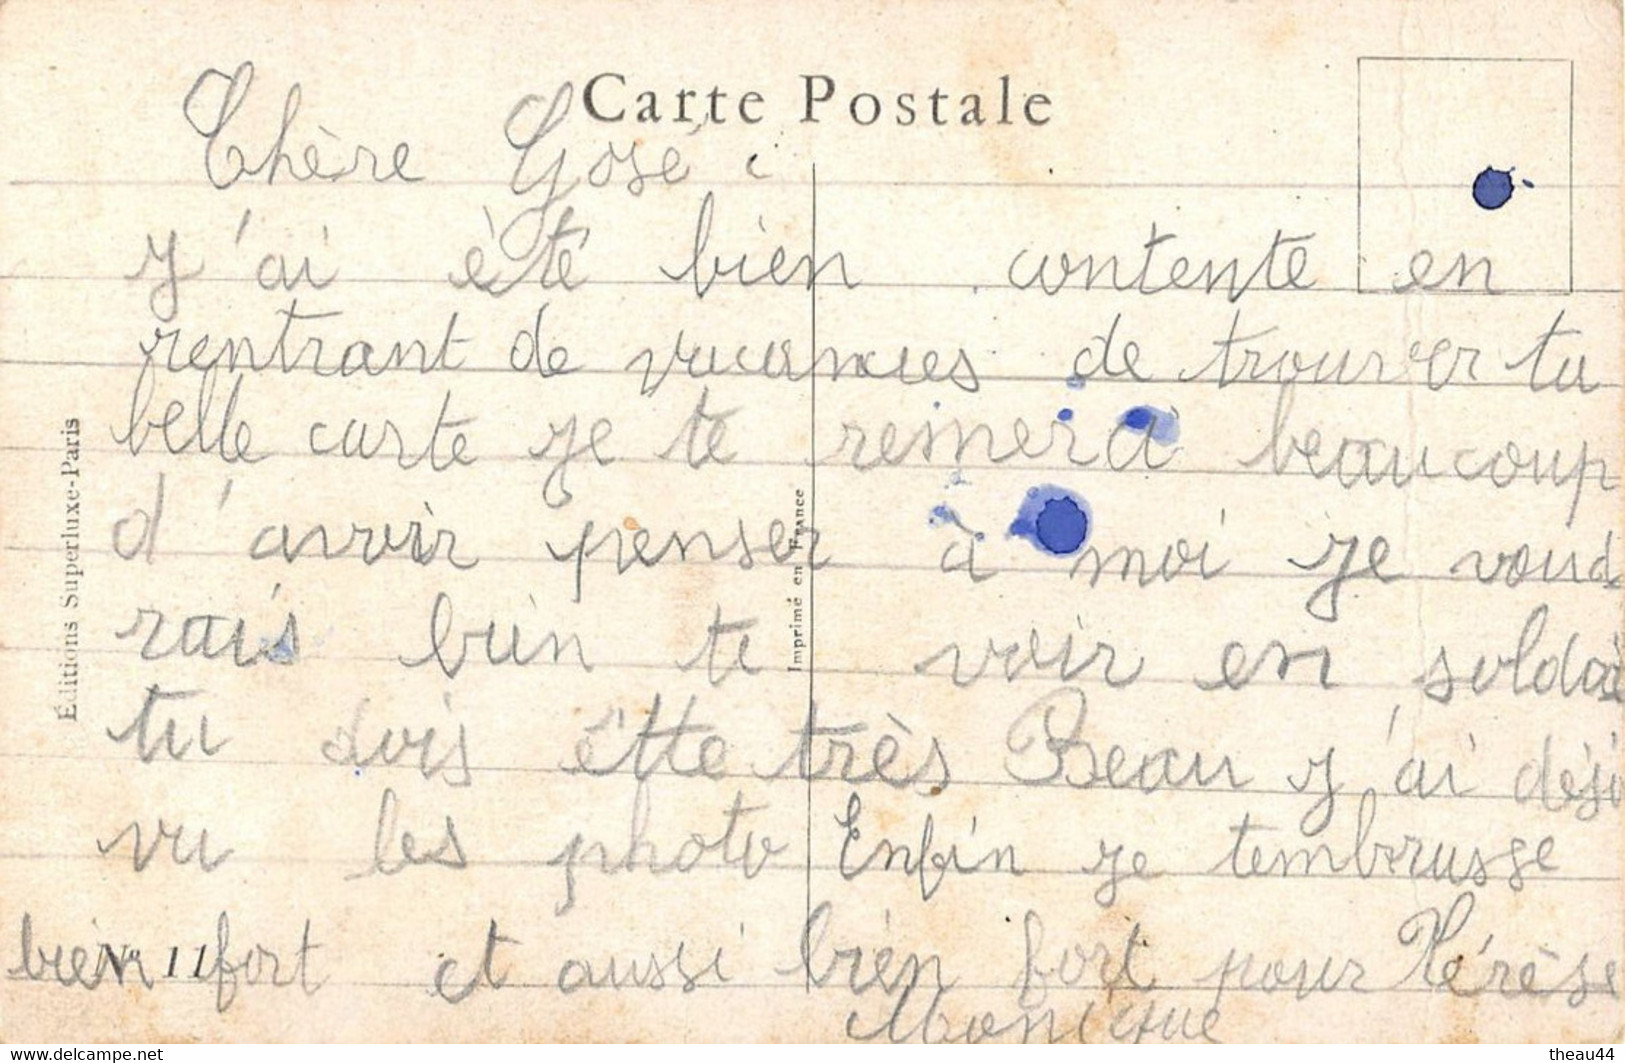 Carte Postale
Chère José
J'ai été bien contente en
rentrant de vacances de trouver ta
belle carte je te remercie beaucoup
d'avoir penser à moi je voud
rais bien te voir en soldat
tu dois être très Beau J'ai déjà
vu les photo Enfin je tembrasse
bien fort et aussi bien fort pour Thérèse
Monique
Éditions Superluxe-Paris
Imprimé en France
No 11
theau44
www.delcampe.net